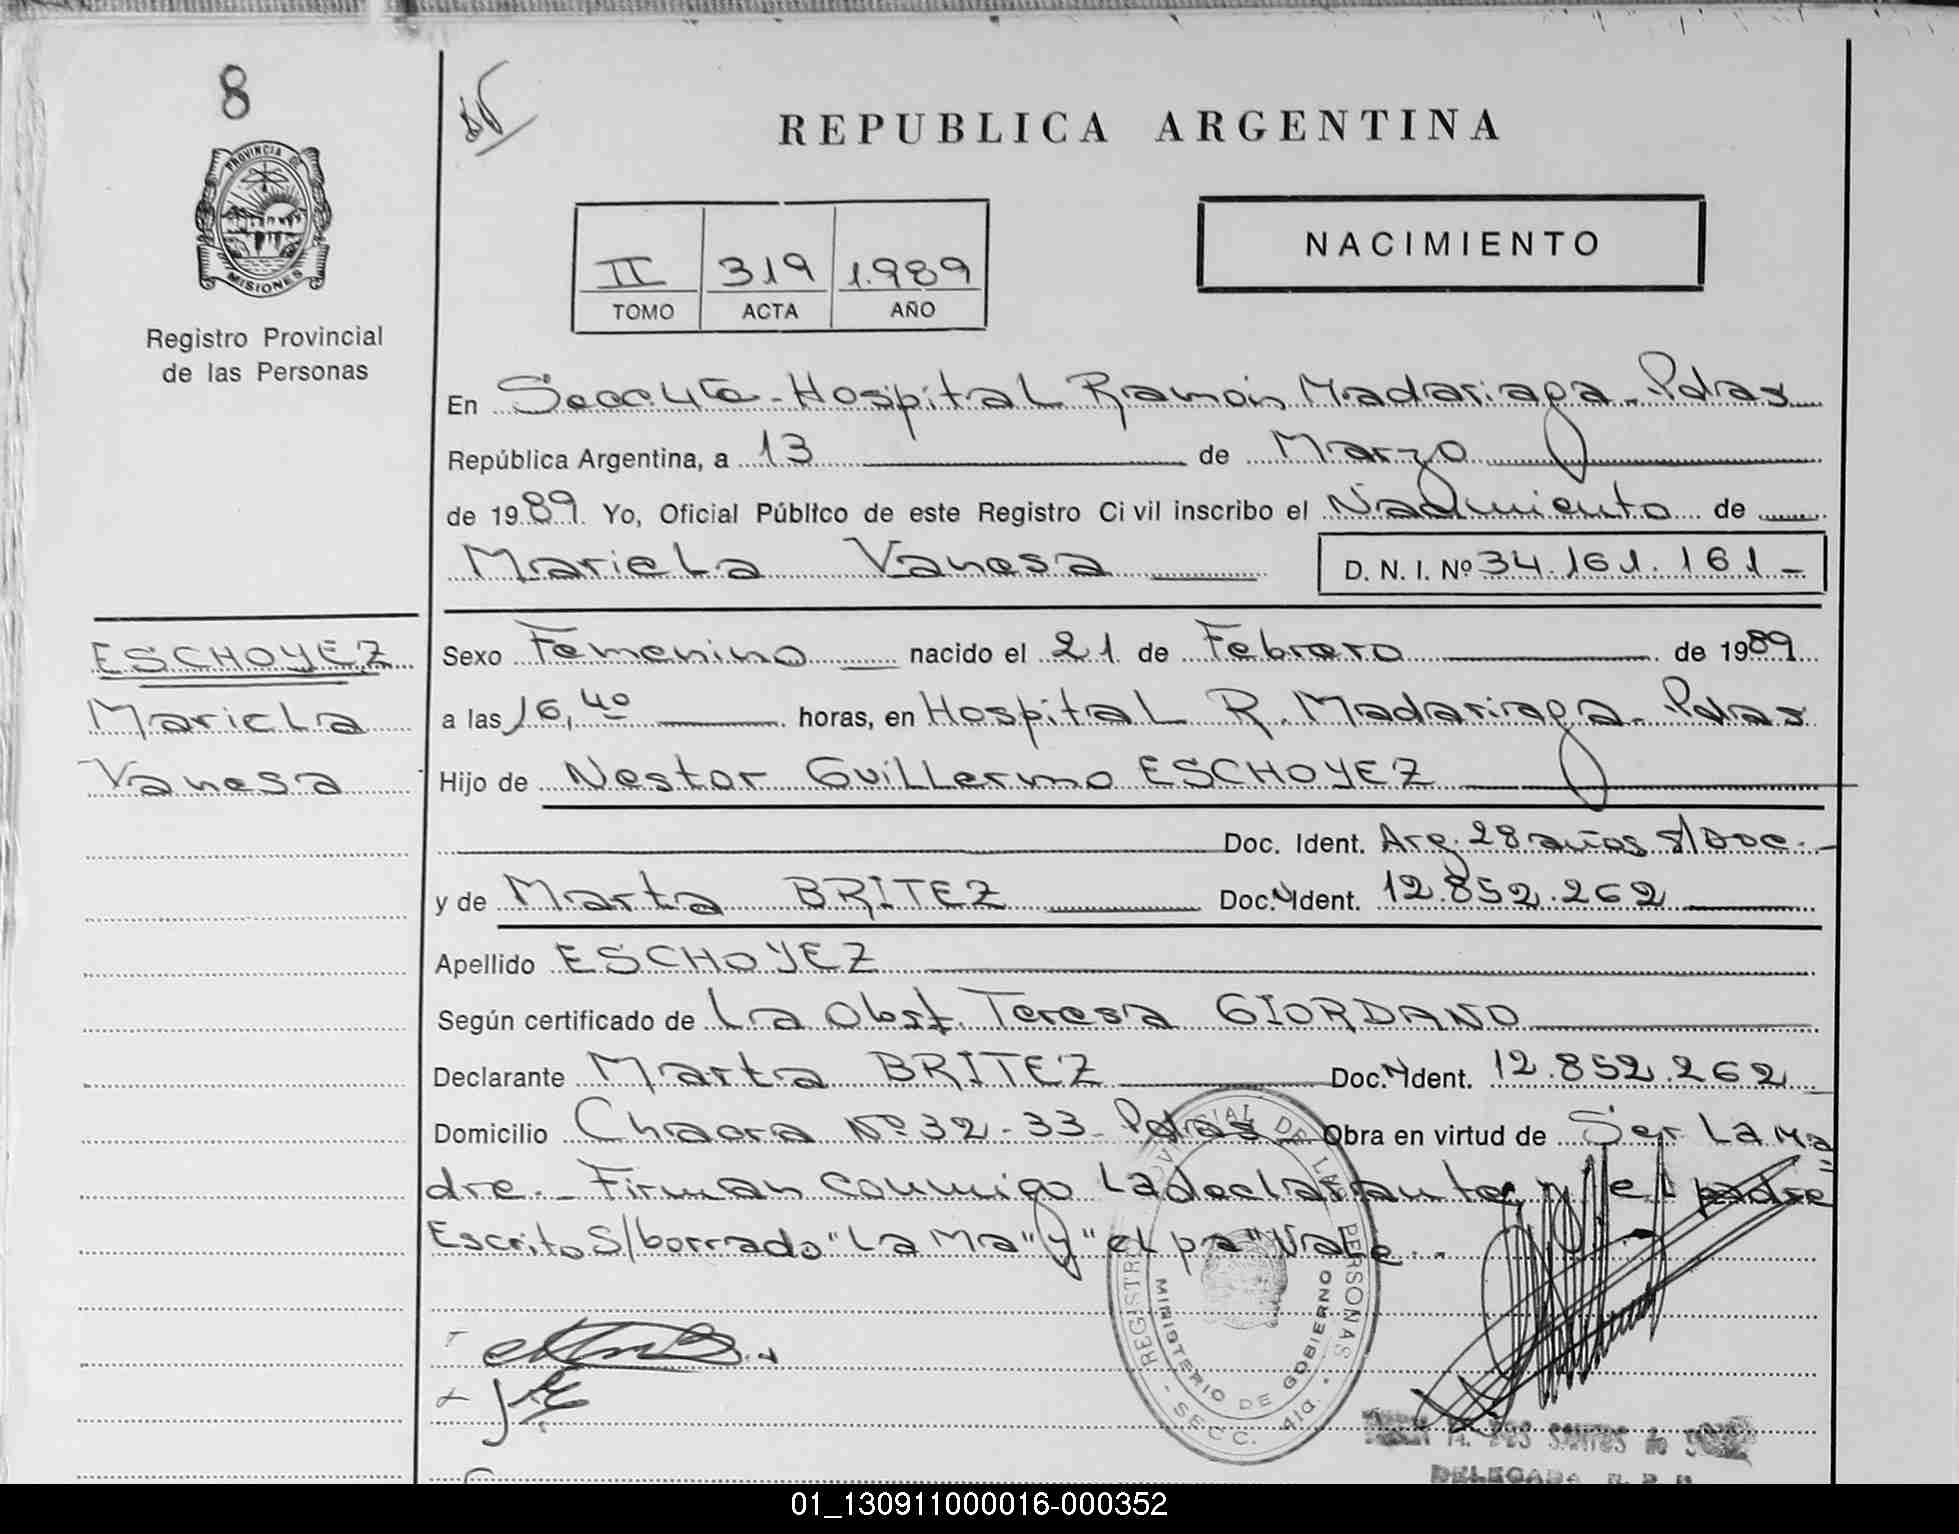 8
PROVINCIA DE
MISIONES
Registro Provincial
de las Personas
REPUBLICA ARGENTINA
II 319 1.989
TOMO ACTA AÑO
NACIMIENTO
En Secc.4ta-Hospital Ramón Madariaga-Pdas
República Argentina, a 13 de Marzo
de 1989. Yo, Oficial Público de este Registro Civil inscribo el Nacimiento de
Mariela Vanesa D. N. I. Nº 34.161.161-
ESCHOYEZ
Mariela
Vanesa
Sexo Femenino nacido el 21 de Febrero de 1989
a las 16,40 horas, en Hospital R. Madariaga-Pdas
Hijo de Nestor Guillermo ESCHOYEZ
Doc. Ident. Arg. 28 años s/Doc.-
y de Marta BRITEZ Doc.N Ident. 12.852.262
Apellido ESCHOYEZ
Según certificado de La Obst. Teresa GIORDANO
Declarante Marta BRITEZ Doc.N Ident. 12.852.262
Domicilio Chacra Nº 32-33-Pdas- Obra en virtud de Ser La Ma=
dre.- Firman conmigo La declarante y el padre
Escrito S/borrado "La Ma" y "el pa" Vale..
REGISTRO PROVINCIAL DE LAS PERSONAS
MINISTERIO DE GOBIERNO
- SECC. 4ta. -
DOS SANTOS de
DELEGADA R. P. P.
01_130911000016-000352